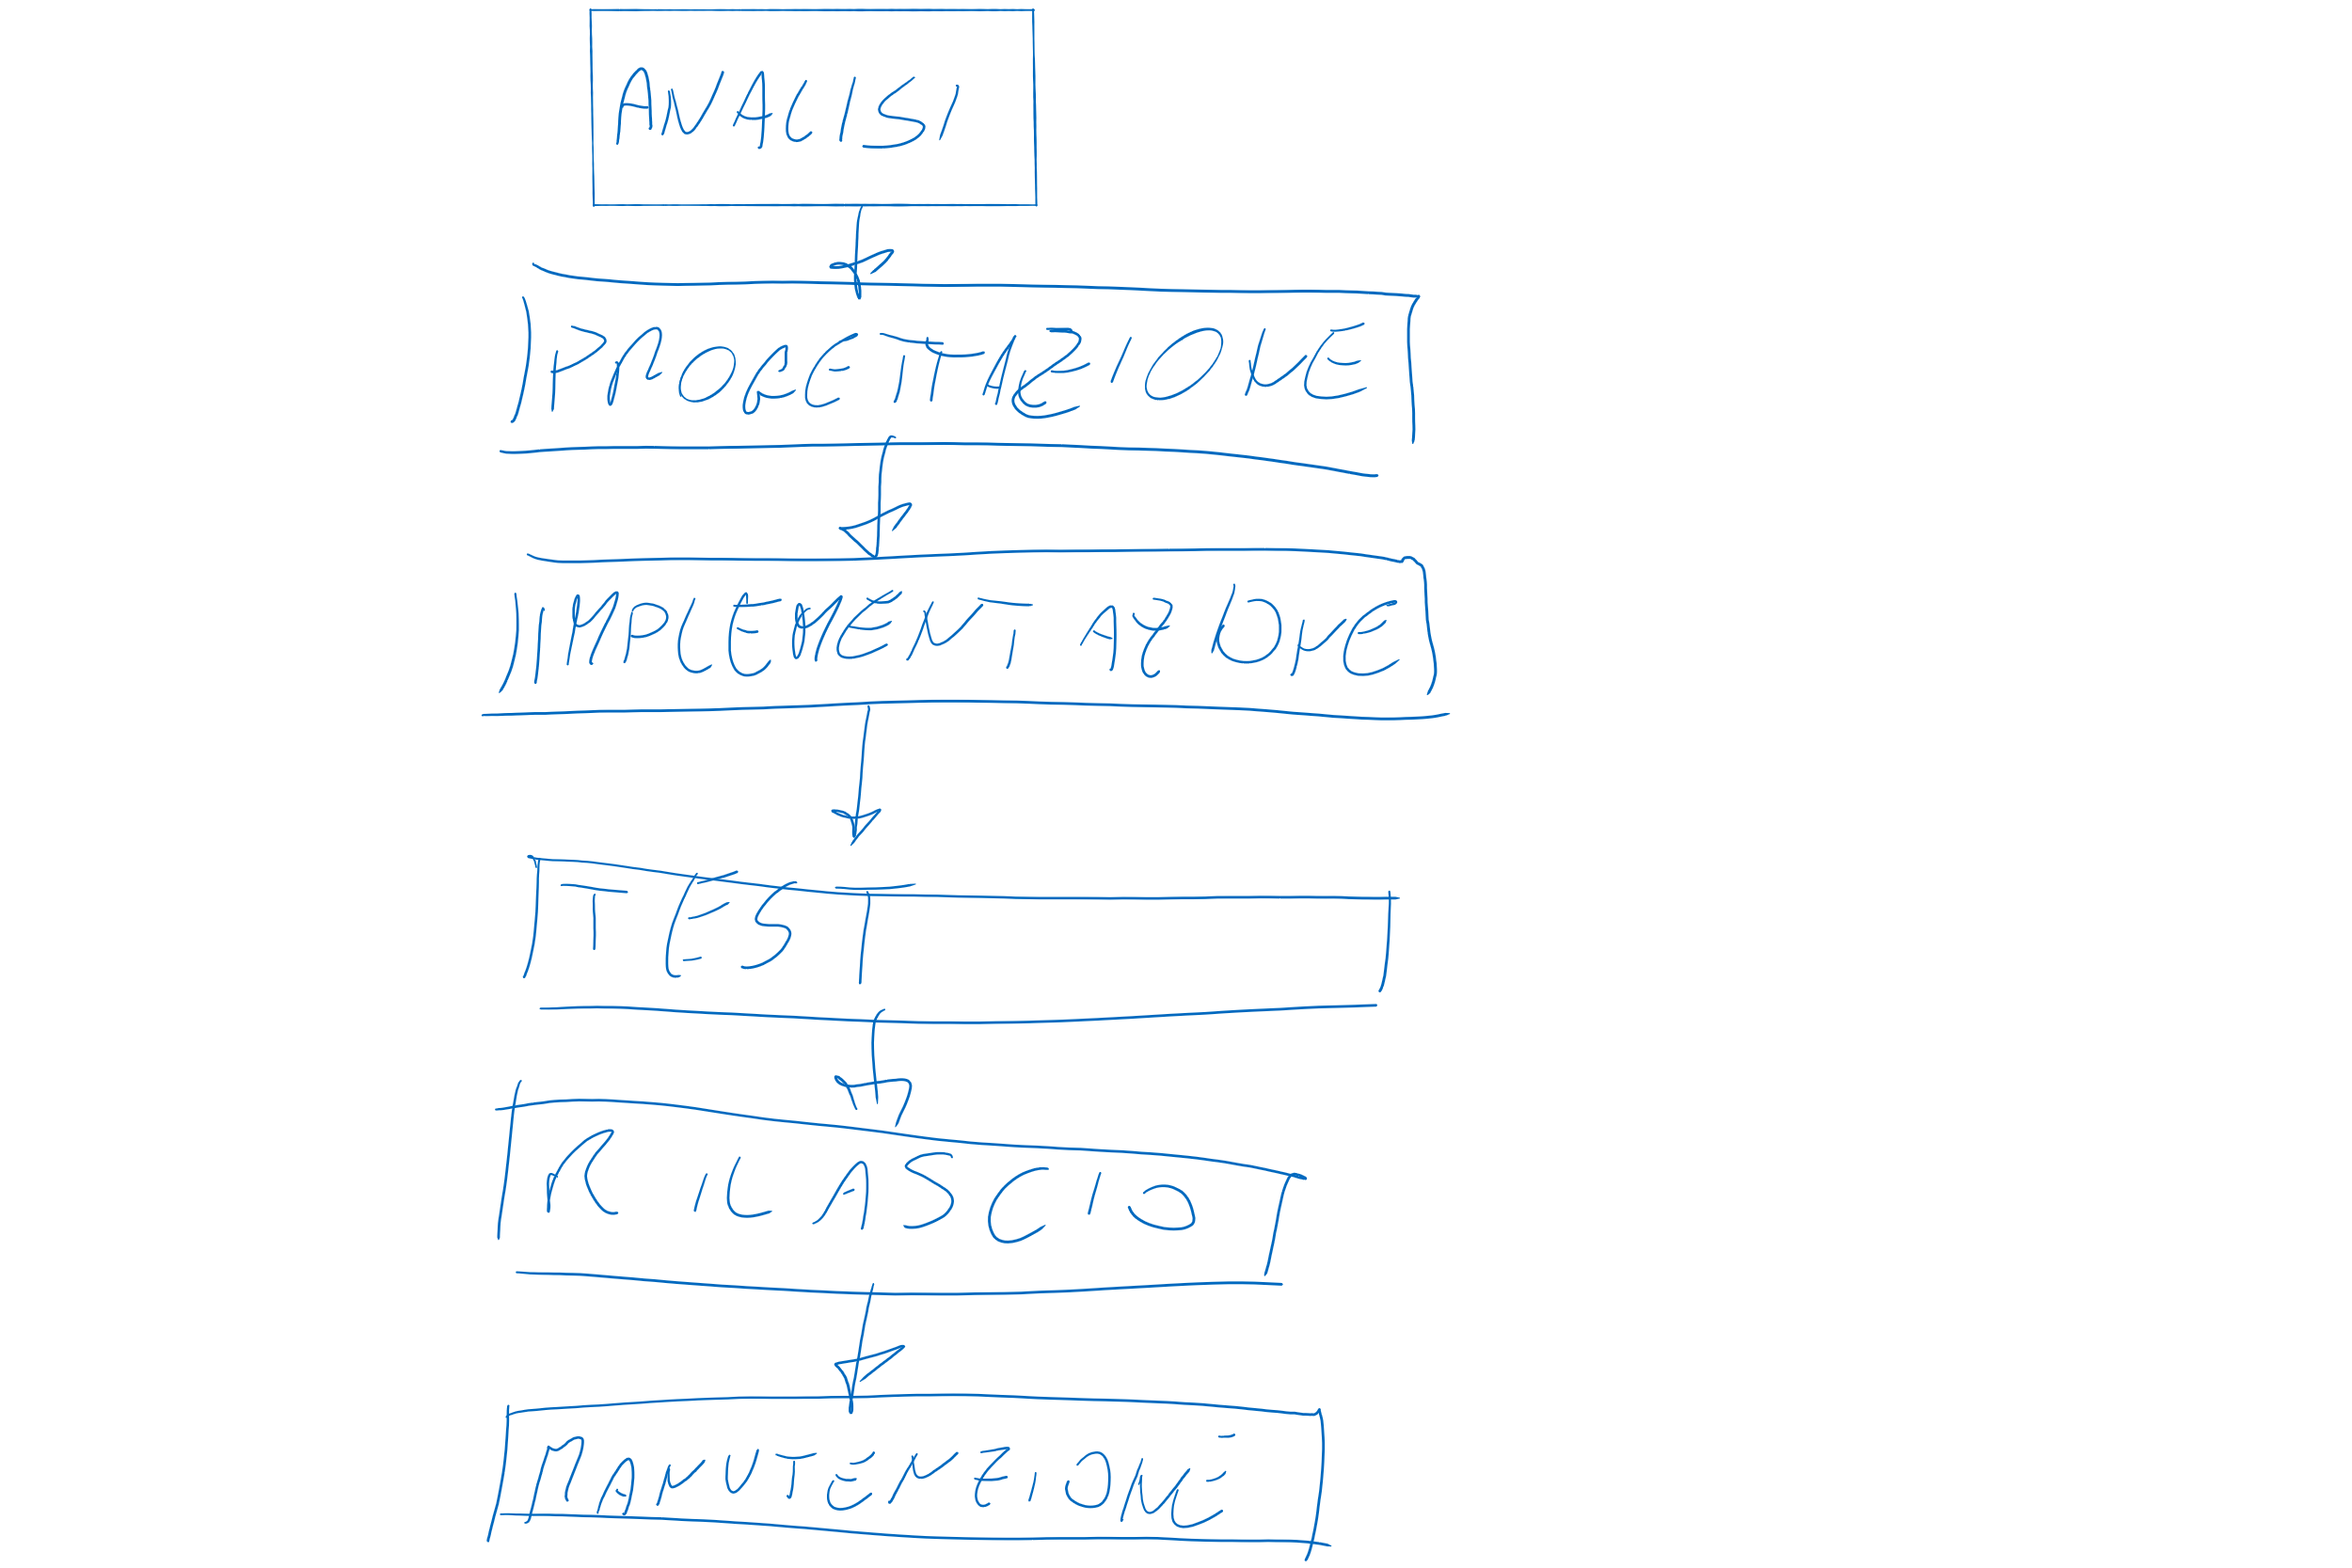 ANALISI
PROGETTAZIONE
IMPLEMENTAZIONE
TEST
RILASCIO
MANUTENZIONE